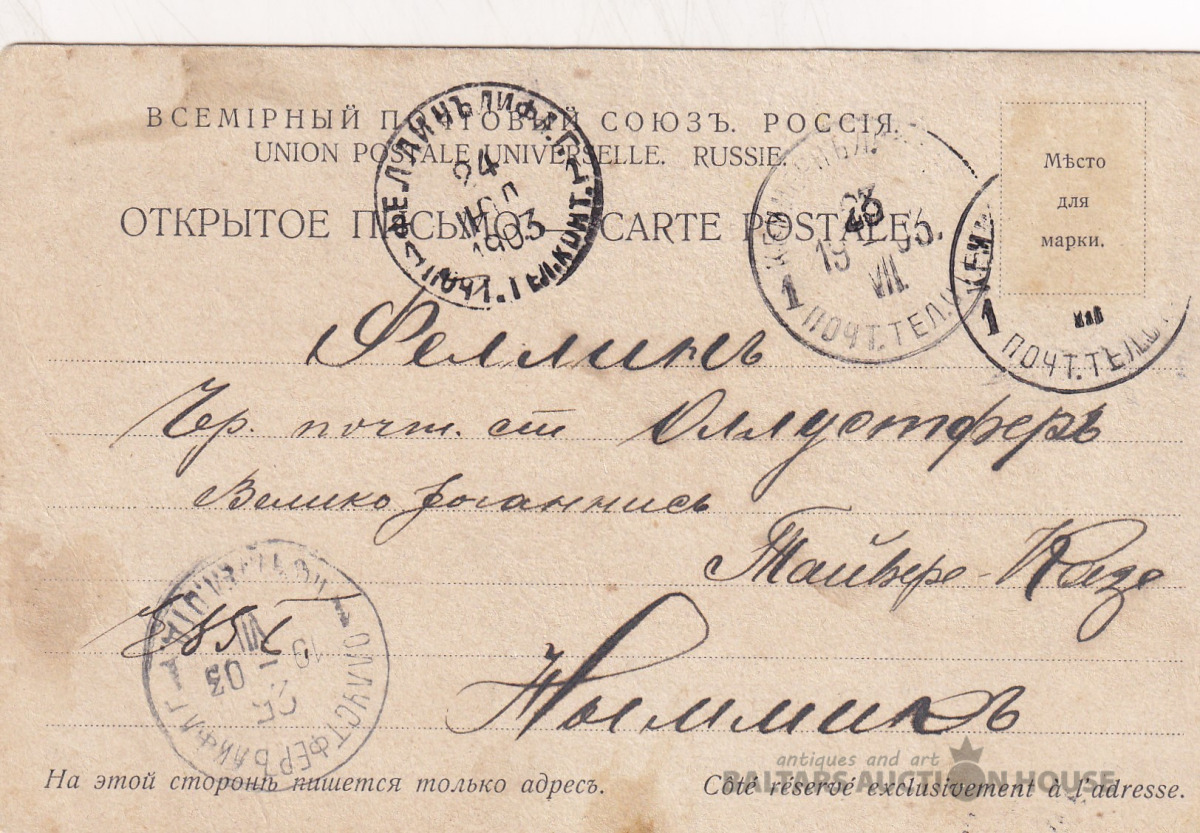 ВСЕМІРНЫЙ ПОЧТОВЫЙ СОЮЗЪ. РОССІЯ.
UNION POSTALE UNIVERSELLE. RUSSIE.
ОТКРЫТОЕ ПИСЬМО — CARTE POSTALE.
Мѣсто
для
марки.
ФЕЛЛИНЪ ЛИФЛ. Г.
24
1903
ПОЧТ. ТЕЛ. КОНТ.
23
19 03
VII
1 ПОЧТ. ТЕЛ.
1 ПОЧТ. ТЕЛ.
Феллинъ
Чр. почт. ст Оллустферъ
Велико Іоаннись
Тайвере-
Ныммикъ
ОЛЛУСТФЕРЪ ЛИФЛ. Г.
VII
19 03
На этой сторонѣ пишется только адресъ.
Côté réservé exclusivement à l'adresse.
antiques and art
BALTARS AUCTION HOUSE